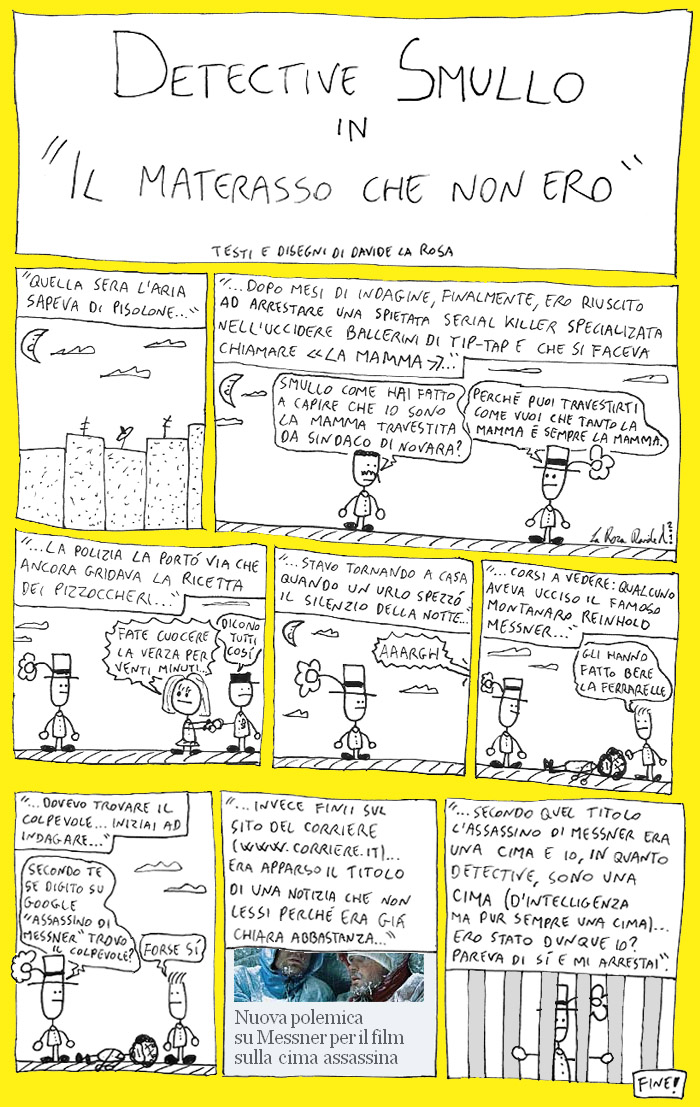 DETECTIVE SMULLO
IN
"IL MATERASSO CHE NON ERO"
TESTI E DISEGNI DI DAVIDE LA ROSA
"QUELLA SERA L'ARIA
SAPEVA DI PISOLONE..."
"...DOPO MESI DI INDAGINE, FINALMENTE, ERO RIUSCITO
AD ARRESTARE UNA SPIETATA SERIAL KILLER SPECIALIZATA
NELL'UCCIDERE BALLERINI DI TIP-TAP E CHE SI FACEVA
CHIAMARE «LA MAMMA»..."
SMULLO COME HAI FATTO
A CAPIRE CHE IO SONO
LA MAMMA TRAVESTITA
DA SINDACO DI NOVARA?
PERCHÉ PUOI TRAVESTIRTI
COME VUOI CHE TANTO LA
MAMMA É SEMPRE LA MAMMA.
"...LA POLIZIA LA PORTÓ VIA CHE
ANCORA GRIDAVA LA RICETTA
DEI PIZZOCCHERI..."
FATE CUOCERE
LA VERZA PER
VENTI MINUTI...
DICONO
TUTTI
COSÍ
"...STAVO TORNANDO A CASA
QUANDO UN URLO SPEZZÓ
IL SILENZIO DELLA NOTTE..."
AAARGH
"...CORSI A VEDERE: QUALCUNO
AVEVA UCCISO IL FAMOSO
MONTANARO REINHOLD
MESSNER..."
GLI HANNO
FATTO BERE
LA FERRARELLE
"...DOVEVO TROVARE IL
COLPEVOLE... INIZIAI AD
INDAGARE..."
SECONDO TE
SE DIGITO SU
GOOGLE
"ASSASSINO DI
MESSNER" TROVO
IL COLPEVOLE?
FORSE SÍ
"...INVECE FINII SUL
SITO DEL CORRIERE
(WWW.CORRIERE.IT)...
ERA APPARSO IL TITOLO
DI UNA NOTIZIA CHE NON
LESSI PERCHÉ ERA GIÁ
CHIARA ABBASTANZA..."
Nuova polemica
su Messner per il film
sulla cima assassina
"...SECONDO QUEL TITOLO
L'ASSASSINO DI MESSNER ERA
UNA CIMA E IO, IN QUANTO
DETECTIVE, SONO UNA
CIMA (D'INTELLIGENZA
MA PUR SEMPRE UNA CIMA)...
ERO STATO DUNQUE IO?
PAREVA DI SÍ E MI ARRESTAI".
FINE!